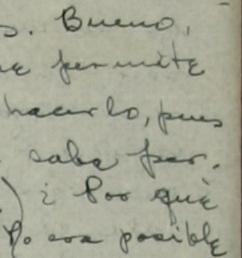 s. Bueno,
me permite
hacerlo, pues
sabe per.
) ¿Por què
No era posible